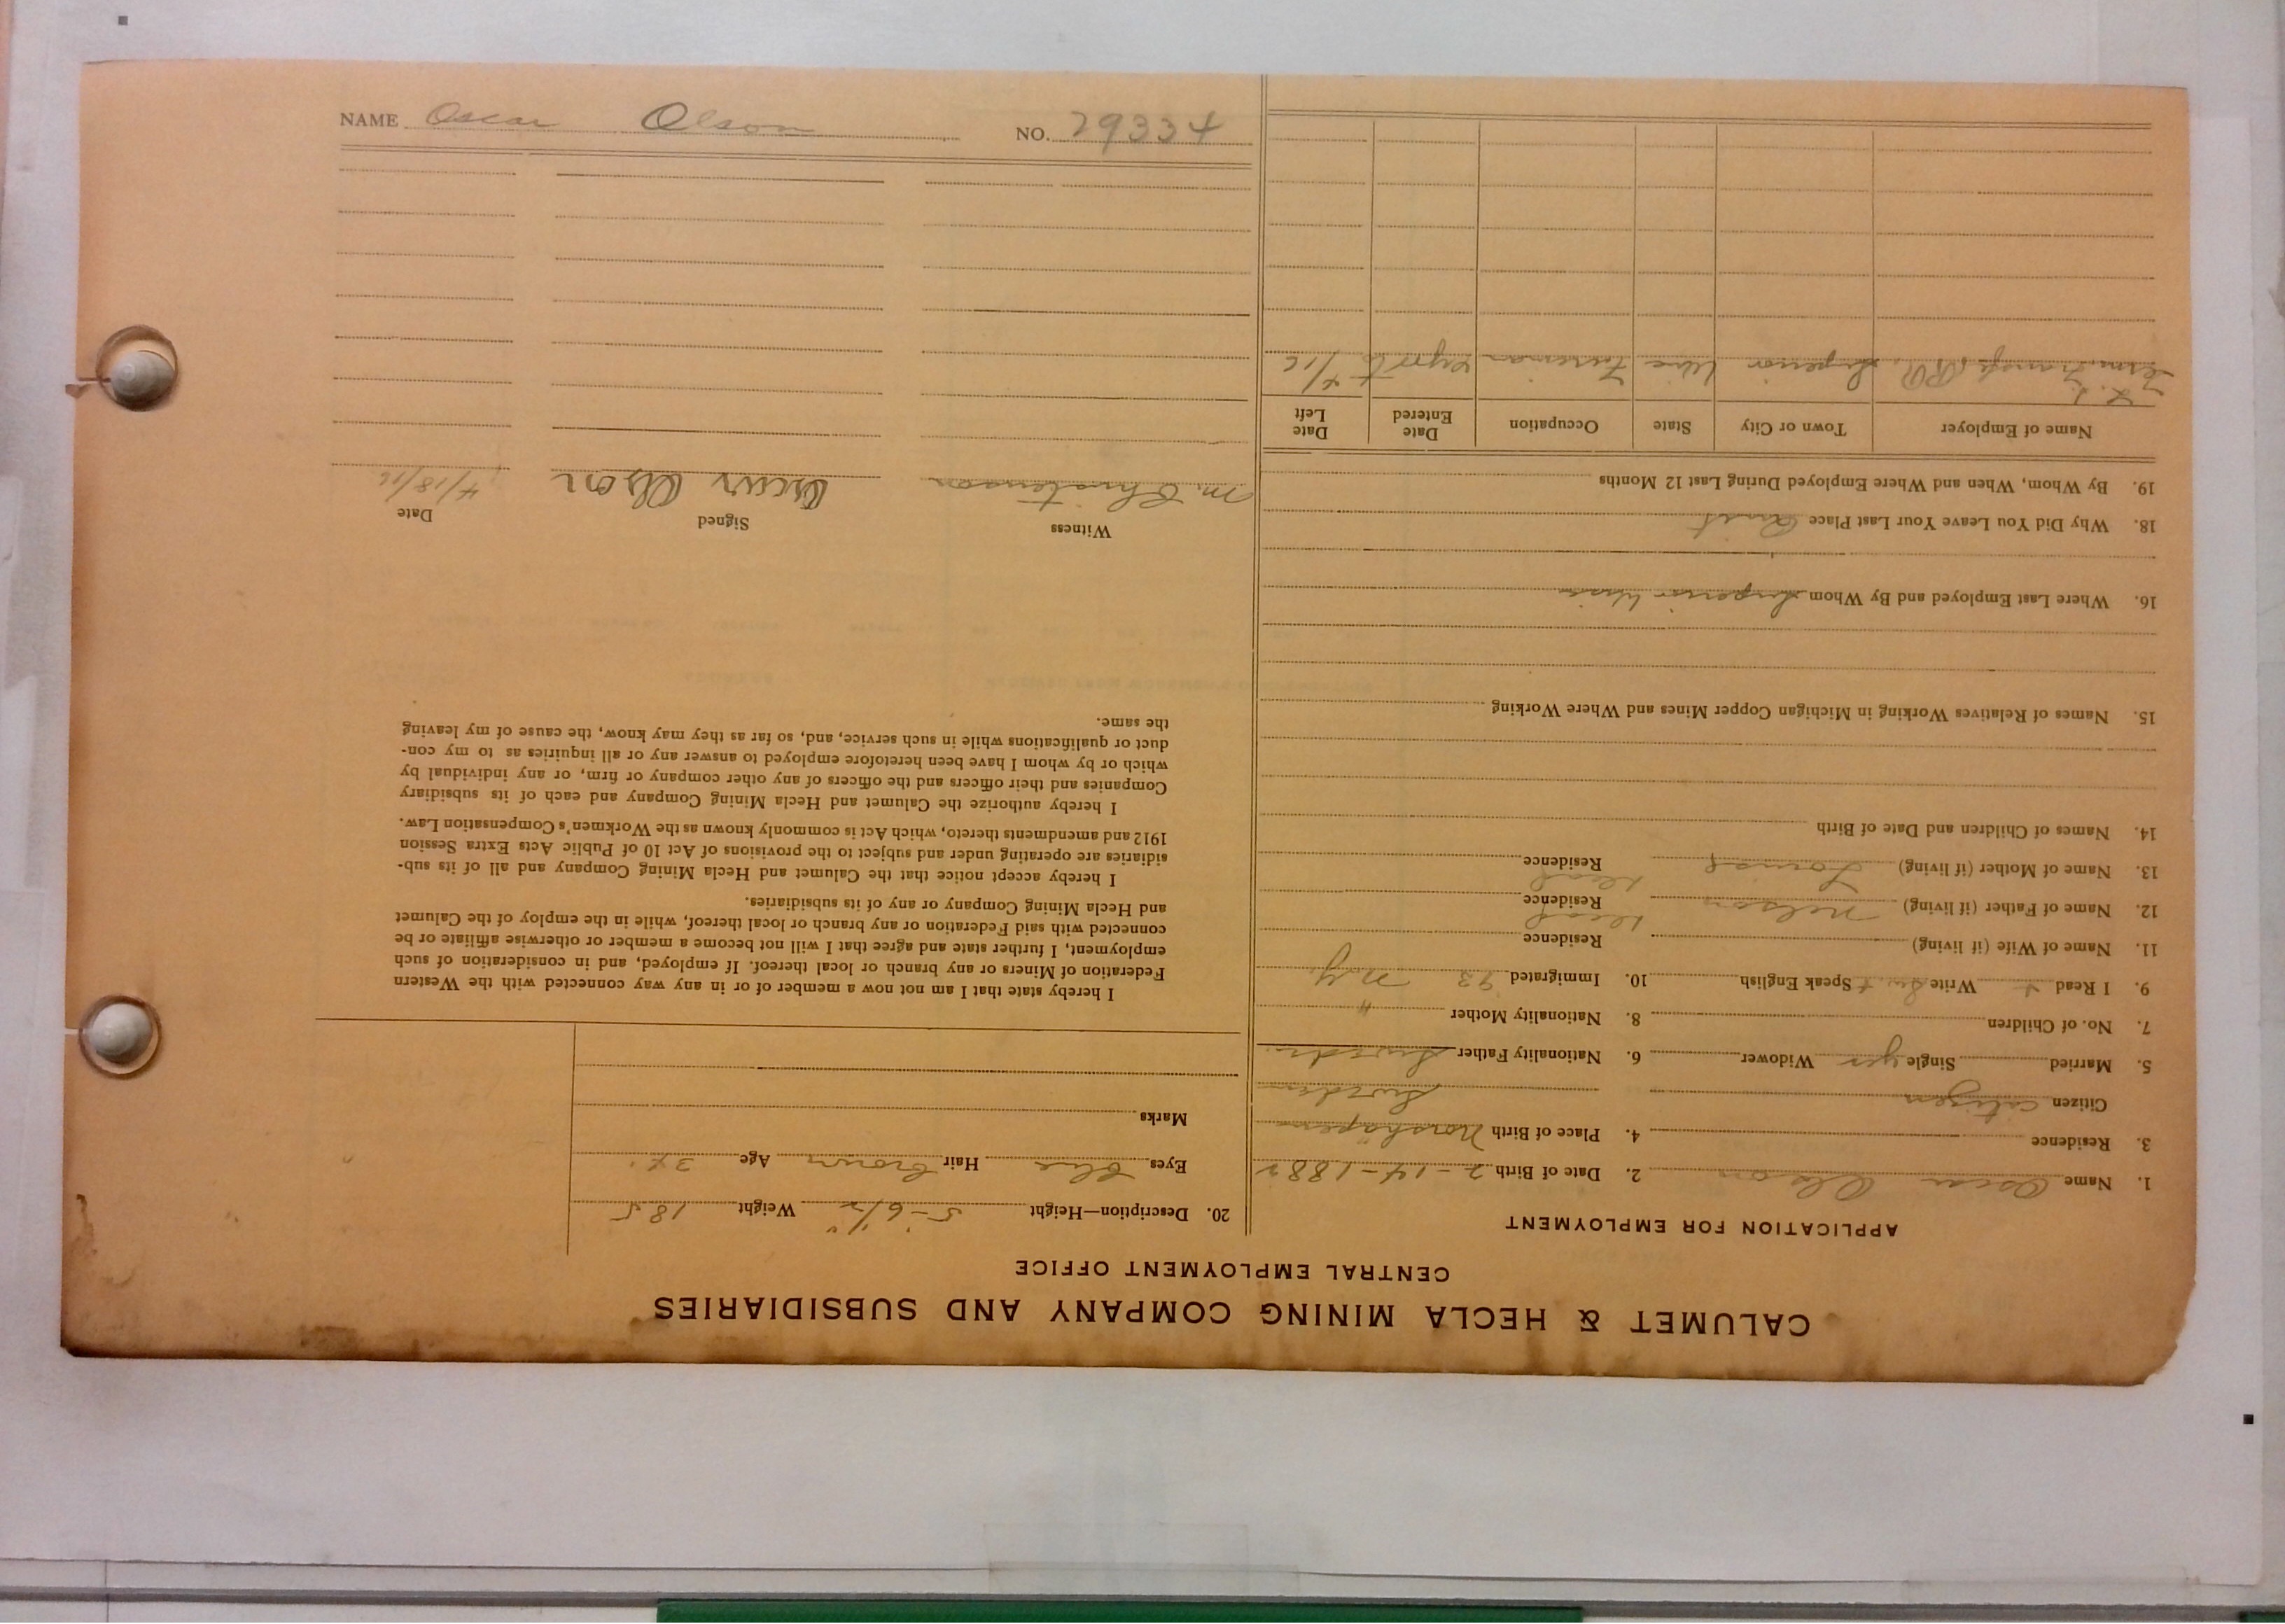 CALUMET & HECLA MINING COMPANY AND SUBSIDIARIES
CENTRAL EMPLOYMENT OFFICE
APPLICATION FOR EMPLOYMENT
1. Name Oscar Olson 2. Date of Birth 2-14-1882
3. Residence 4. Place of Birth
Citizen citizen Sweden
5. Married Single yes Widower 6. Nationality Father Swede
7. No. of Children 8. Nationality Mother "
9. I Read Write Speak English 10. Immigrated 93 N.Y.
11. Name of Wife (if living) Residence
12. Name of Father (if living) Nelson Residence dead
13. Name of Mother (if living) Residence dead
14. Names of Children and Date of Birth
15. Names of Relatives Working in Michigan Copper Mines and Where Working
16. Where Last Employed and By Whom Superior Wis
18. Why Did You Leave Your Last Place Quit
19. By Whom, When and Where Employed During Last 12 Months
Name of Employer Town or City State Occupation Date Entered Date Left
RR. Superior Wis Fireman 4/16
20. Description—Height 5-6 1/2" Weight 185
Eyes blue Hair brown Age 34
Marks
I hereby state that I am not now a member of or in any way connected with the Western
Federation of Miners or any branch or local thereof. If employed, and in consideration of such
employment, I further state and agree that I will not become a member or otherwise affiliate or be
connected with said Federation or any branch or local thereof, while in the employ of the Calumet
and Hecla Mining Company or any of its subsidiaries.
I hereby accept notice that the Calumet and Hecla Mining Company and all of its sub-
sidiaries are operating under and subject to the provisions of Act 10 of Public Acts Extra Session
1912 and amendments thereto, which Act is commonly known as the Workmen's Compensation Law.
I hereby authorize the Calumet and Hecla Mining Company and each of its subsidiary
Companies and their officers and the officers of any other company or firm, or any individual by
which or by whom I have been heretofore employed to answer any or all inquiries as to my con-
duct or qualifications while in such service, and, so far as they may know, the cause of my leaving
the same.
Witness Signed Date
M. Christenson Oscar Olson 4/18/16
NAME Oscar Olson NO. 29334